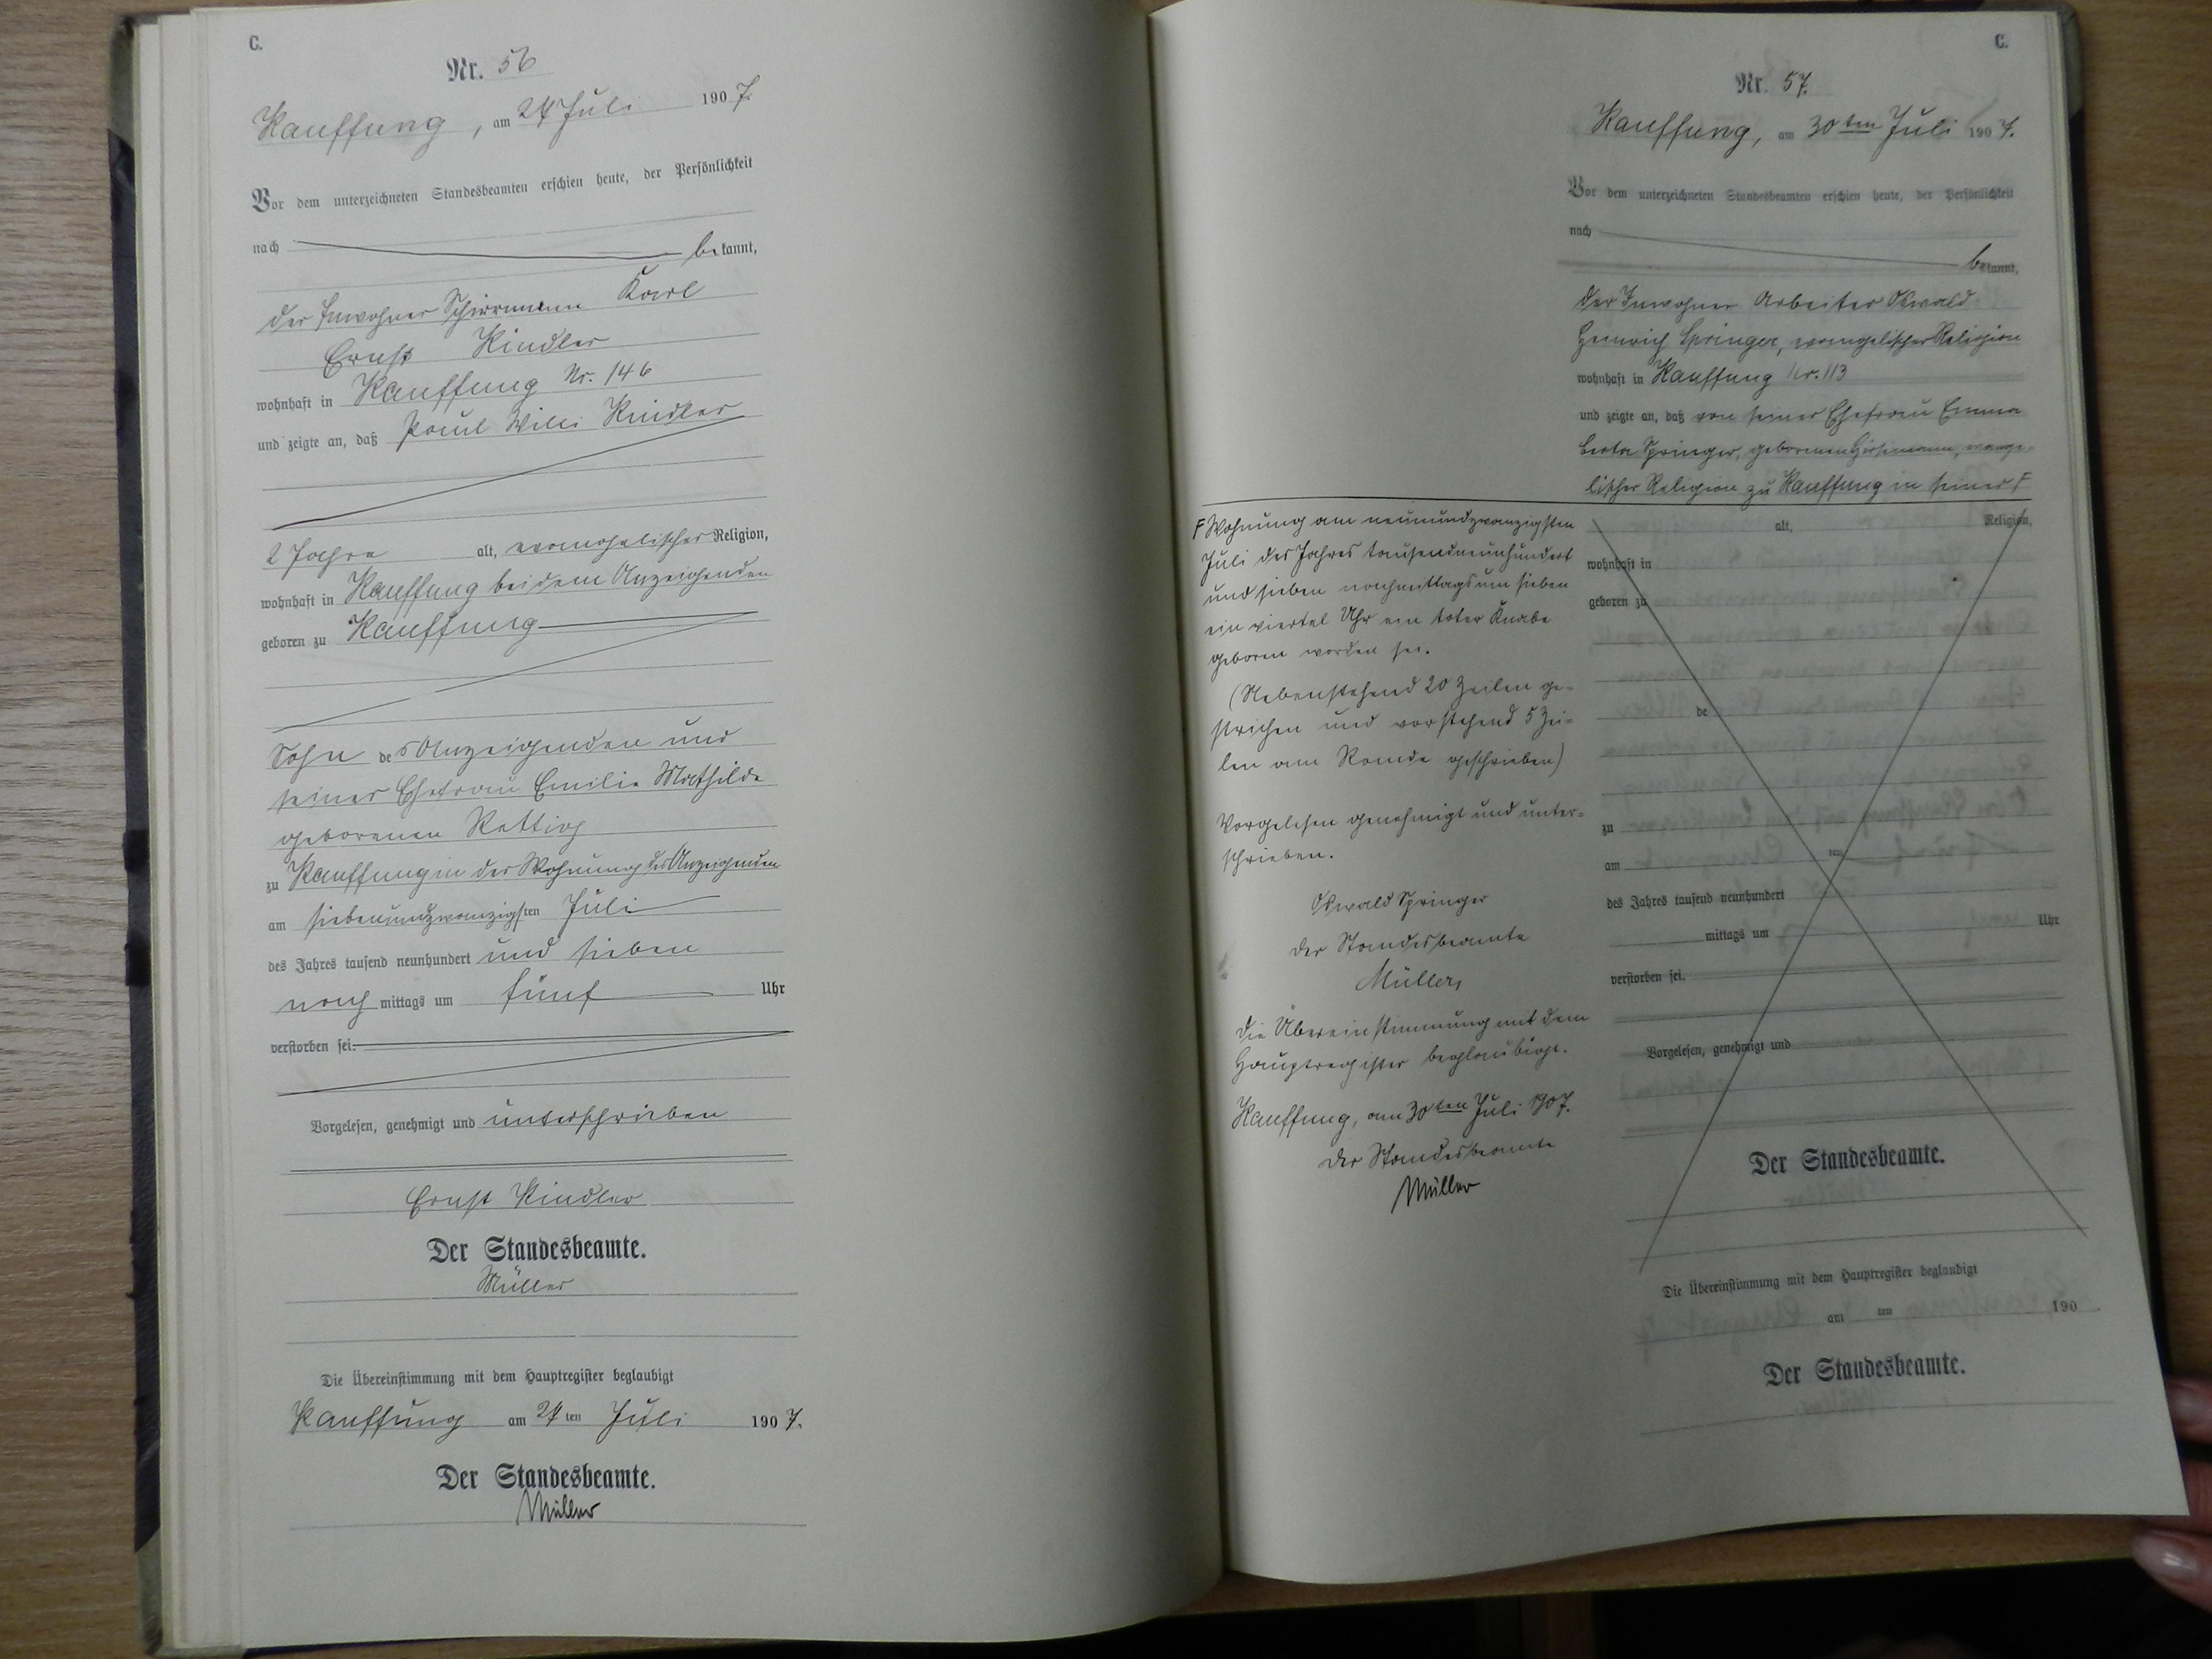 C.
Nr. 56
Kauffung, am 27 Juli 1907.
Vor dem unterzeichneten Standesbeamten erschien heute, der Persönlichkeit
nach bekannt,
der Inwohner Schirrmann Karl
Ernst Kindler
wohnhaft in Kauffung Nr. 146
und zeigte an, daß Paul Willi Kindler
2 Jahre alt, evangelischer Religion,
wohnhaft in Kauffung bei dem Anzeigenden
geboren zu Kauffung
Sohn des Anzeigenden und
seiner Ehefrau Emilie Mathilde
geborenen Rettig
zu Kauffung in der Wohnung des Anzeigenden
am siebenundzwanzigsten Juli
des Jahres tausend neunhundert und sieben
nachmittags um fünf Uhr
verstorben sei.
Vorgelesen, genehmigt und unterschrieben
Ernst Kindler
Der Standesbeamte.
Müller
Die Übereinstimmung mit dem Hauptregister beglaubigt
Kauffung am 27 ten Juli 1907.
Der Standesbeamte.
Müller
C.
Nr. 57.
Kauffung, am 30ten Juli 1907.
Vor dem unterzeichneten Standesbeamten erschien heute, der Persönlichkeit
nach bekannt,
der Inwohner Arbeiter Oswald
Heinrich Springer, evangelischer Religion
wohnhaft in Kauffung Nr. 113
und zeigte an, daß von seiner Ehefrau Emma
Springer, geborenen evange-
lischer Religion zu Kauffung in seiner F
F Wohnung am neunundzwanzigsten
Juli des Jahres tausendneunhundert
und sieben nachmittags um sieben
ein viertel Uhr ein toter Knabe
geboren worden sei.
(Nebenstehend 20 Zeilen ge-
strichen und vorstehend 5 Zei-
len am Rande geschrieben)
Vorgelesen genehmigt und unter-
schrieben.
Oswald Springer
Der Standesbeamte
Müller,
Die Übereinstimmung mit dem
Hauptregister beglaubigt.
Kauffung, am 30ten Juli 1907.
Der Standesbeamte
Müller
alt, Religion,
wohnhaft in
geboren zu
de
zu
am ten
des Jahres tausend neunhundert
mittags um Uhr
verstorben sei.
Vorgelesen, genehmigt und
Der Standesbeamte.
Die Übereinstimmung mit dem Hauptregister beglaubigt
am ten 190
Der Standesbeamte.